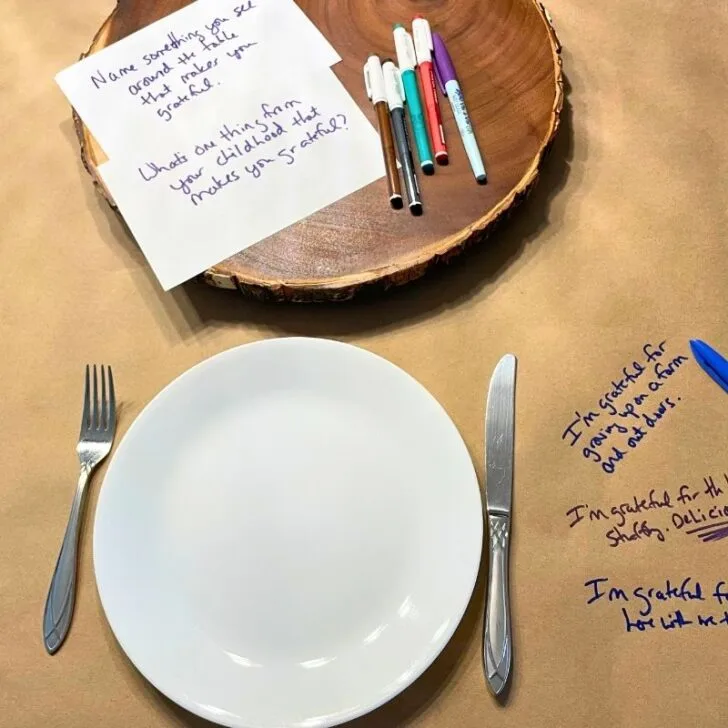 Name something you see
around the table
that makes you
grateful.
Whats one thing from
your childhood that
makes you grateful?
I'm grateful for
growing up on a farm
and out doors.
I'm grateful for th
stuffing. Delicio
I'm grateful f
here with me t